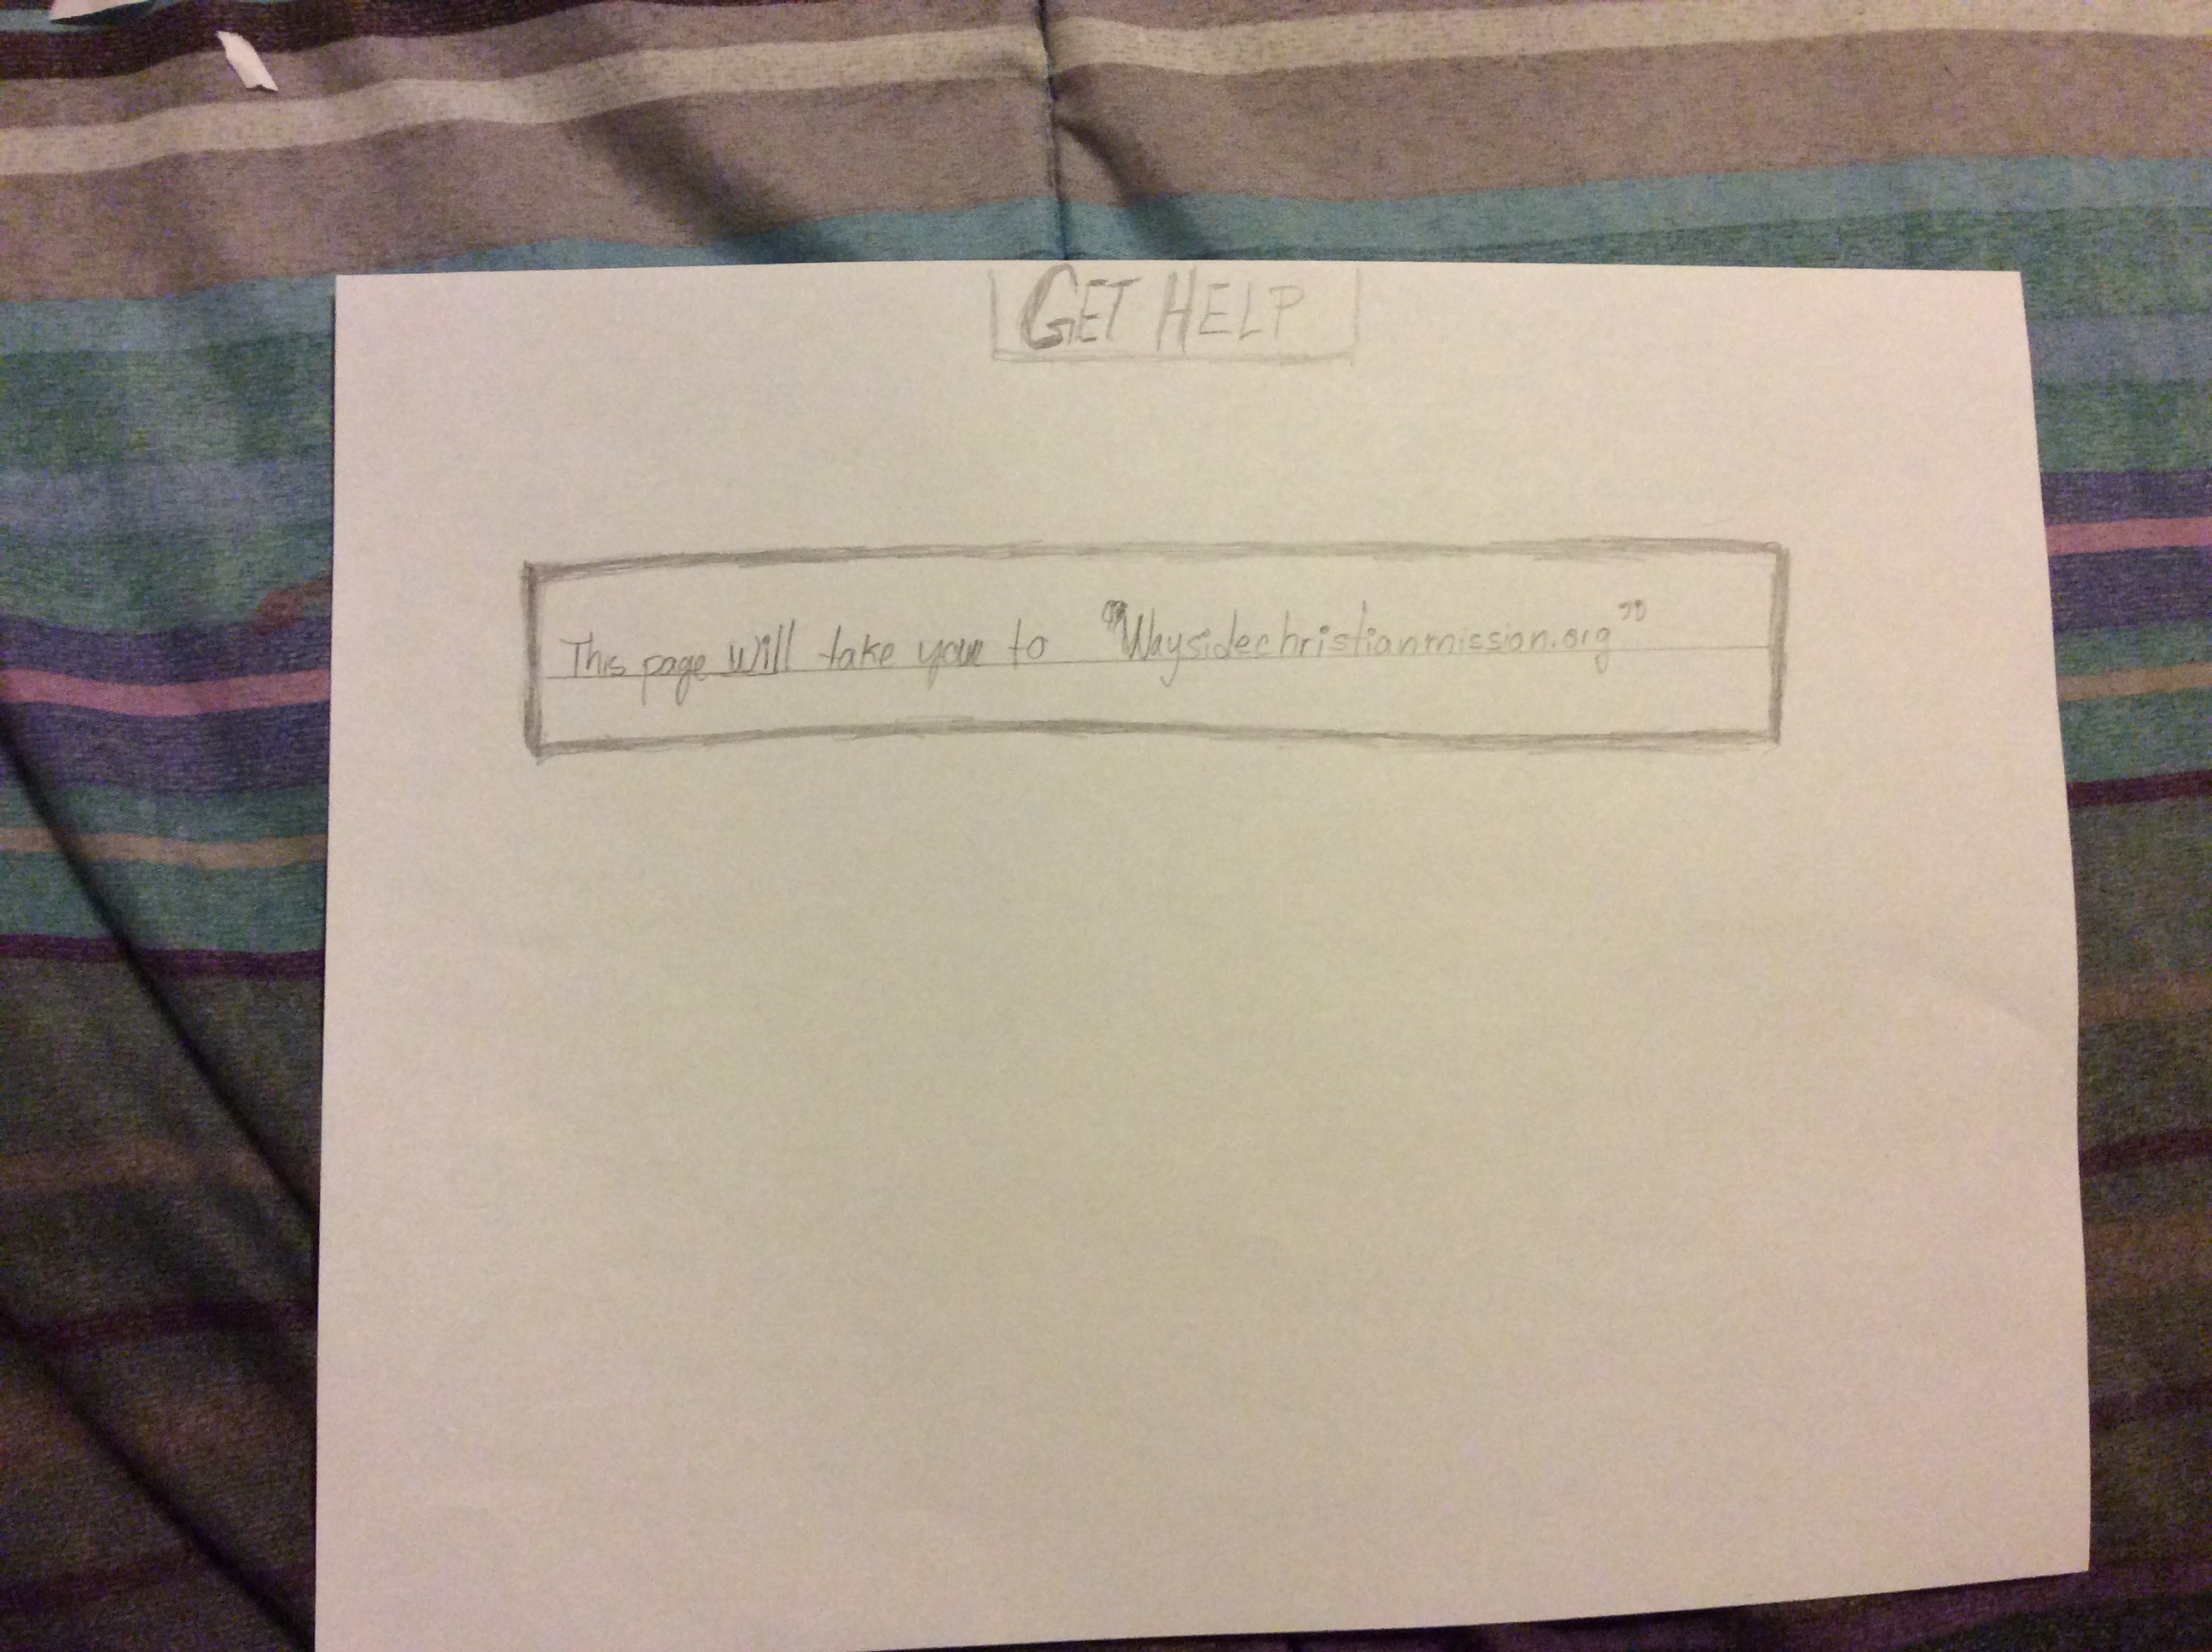 GET HELP
This page will take you to "Waysidechristianmission.org"